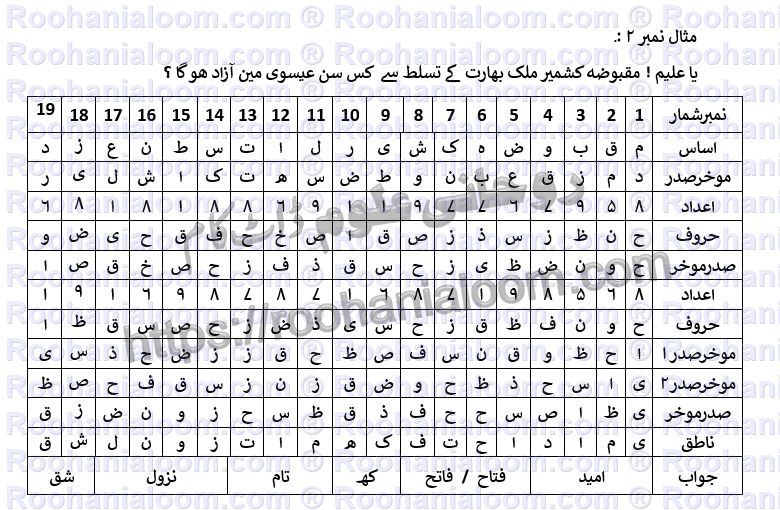 مثال نمبر ۲ :.
یا علیم ! مقبوضہ کشمیر ملک بھارت کے تسلط سے کس سن عیسوی مین آزاد ھو گا ؟
نمبرشمار 1 2 3 4 5 6 7 8 9 10 11 12 13 14 15 16 17 18 19
اساس م ق ب و ض ہ ک ش ی ر ل ا ت س ط ن ع ز د
موخرصدر د م ز ق ع ب ن و ط ض س ھ ت ک ا ش ل ی ر
اعداد ۸ ۵ ۹ ۷ ۶ ۷ ۷ ۹ ۱ ۱ ۹ ۶ ۸ ۸ ۱ ۸ ۱ ۸ ۶
حروف ح ن ظ ز س ذ ز ص ق ا ص خ ح ف ق ح ی ض و
صدرموخر ح و ن ض ظ ی ز ح س ق ذ ف ز ح ص خ ق ص ا
اعداد ۸ ۶ ۵ ۸ ۹ ۱ ۷ ۸ ۶ ۱ ۷ ۸ ۷ ۸ ۹ ۶ ۱ ۹ ۱
حروف ح و ن ف ظ ق ز ح س ی ذ ض ز ح ص س ق ظ ا
موخرصدر۱ ا ح ظ و ق ن س ف ص ظ ح ق ز ز ض ح ذ س ی
موخرصدر۲ ی ا س ح ذ ظ ح و ض ق ز ن ز س ق ف ح ص ظ
صدرموخر ی ظ ا ص س ح ح ف ذ ق ظ س ح ز و ن ض ز ق
ناطق ی م ا د ا ح ت ف ک ھ م ا ت ز و ن ل ش ق
جواب امید فتاح / فاتح کھ تام نزول شق
روحانی علوم ڈاٹ کام
https://roohanialoom.com